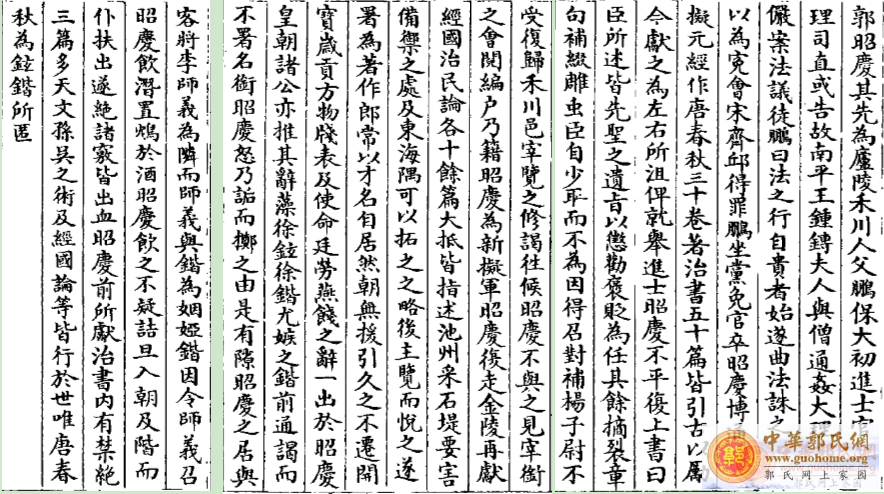 郭昭慶其先為廬陵禾川人父鵬保大初進士官
理司直或告故南平王鍾鏄夫人與僧通姦大理
儼案法議徒鵬曰法之行自貴者始遂曲法誅之
以為寃會宋齊邱得罪鵬坐黨免官卒昭慶博
擬元經作唐春秋三十卷著治書五十篇皆引古以厲
今獻之為左右所沮俾就舉進士昭慶不平復上書曰
臣所述皆先聖之遺旨以懲勸褒貶為任其餘摘裂章
句補綴雕虫臣自少耻而不為因得召對補楊子尉不
受復歸禾川邑宰覽之修謁往候昭慶不與之見宰銜
之會閱編户乃籍昭慶為新擬軍昭慶復走金陵再獻
經國治民論各十餘篇大抵皆指述池州采石堤要害
備禦之處及東海隅可以拓之之略後主覽而悅之遂
署為著作郎常以才名自居然朝無援引久之不遷開
寶歲貢方物牋表及使命廷勞燕餞之辭一出於昭慶
皇朝諸公亦推其辭藻徐鉉徐鍇尤嫉之鍇前通謁而
不署名銜昭慶怒乃詬而擲之由是有隙昭慶之居與
客將李師義為隣而師義與鍇為姻婭鍇因令師義召
昭慶飲潛置鴆於酒昭慶飲之不疑詰旦入朝及階而
仆扶出遂絶諸竅皆出血昭慶前所獻治書内有禁絶
三篇多天文孫吳之術及經國論等皆行於世唯唐春
秋為鉉鍇所匿
中華郭氏網
www.guohome.org
郭氏網上家園